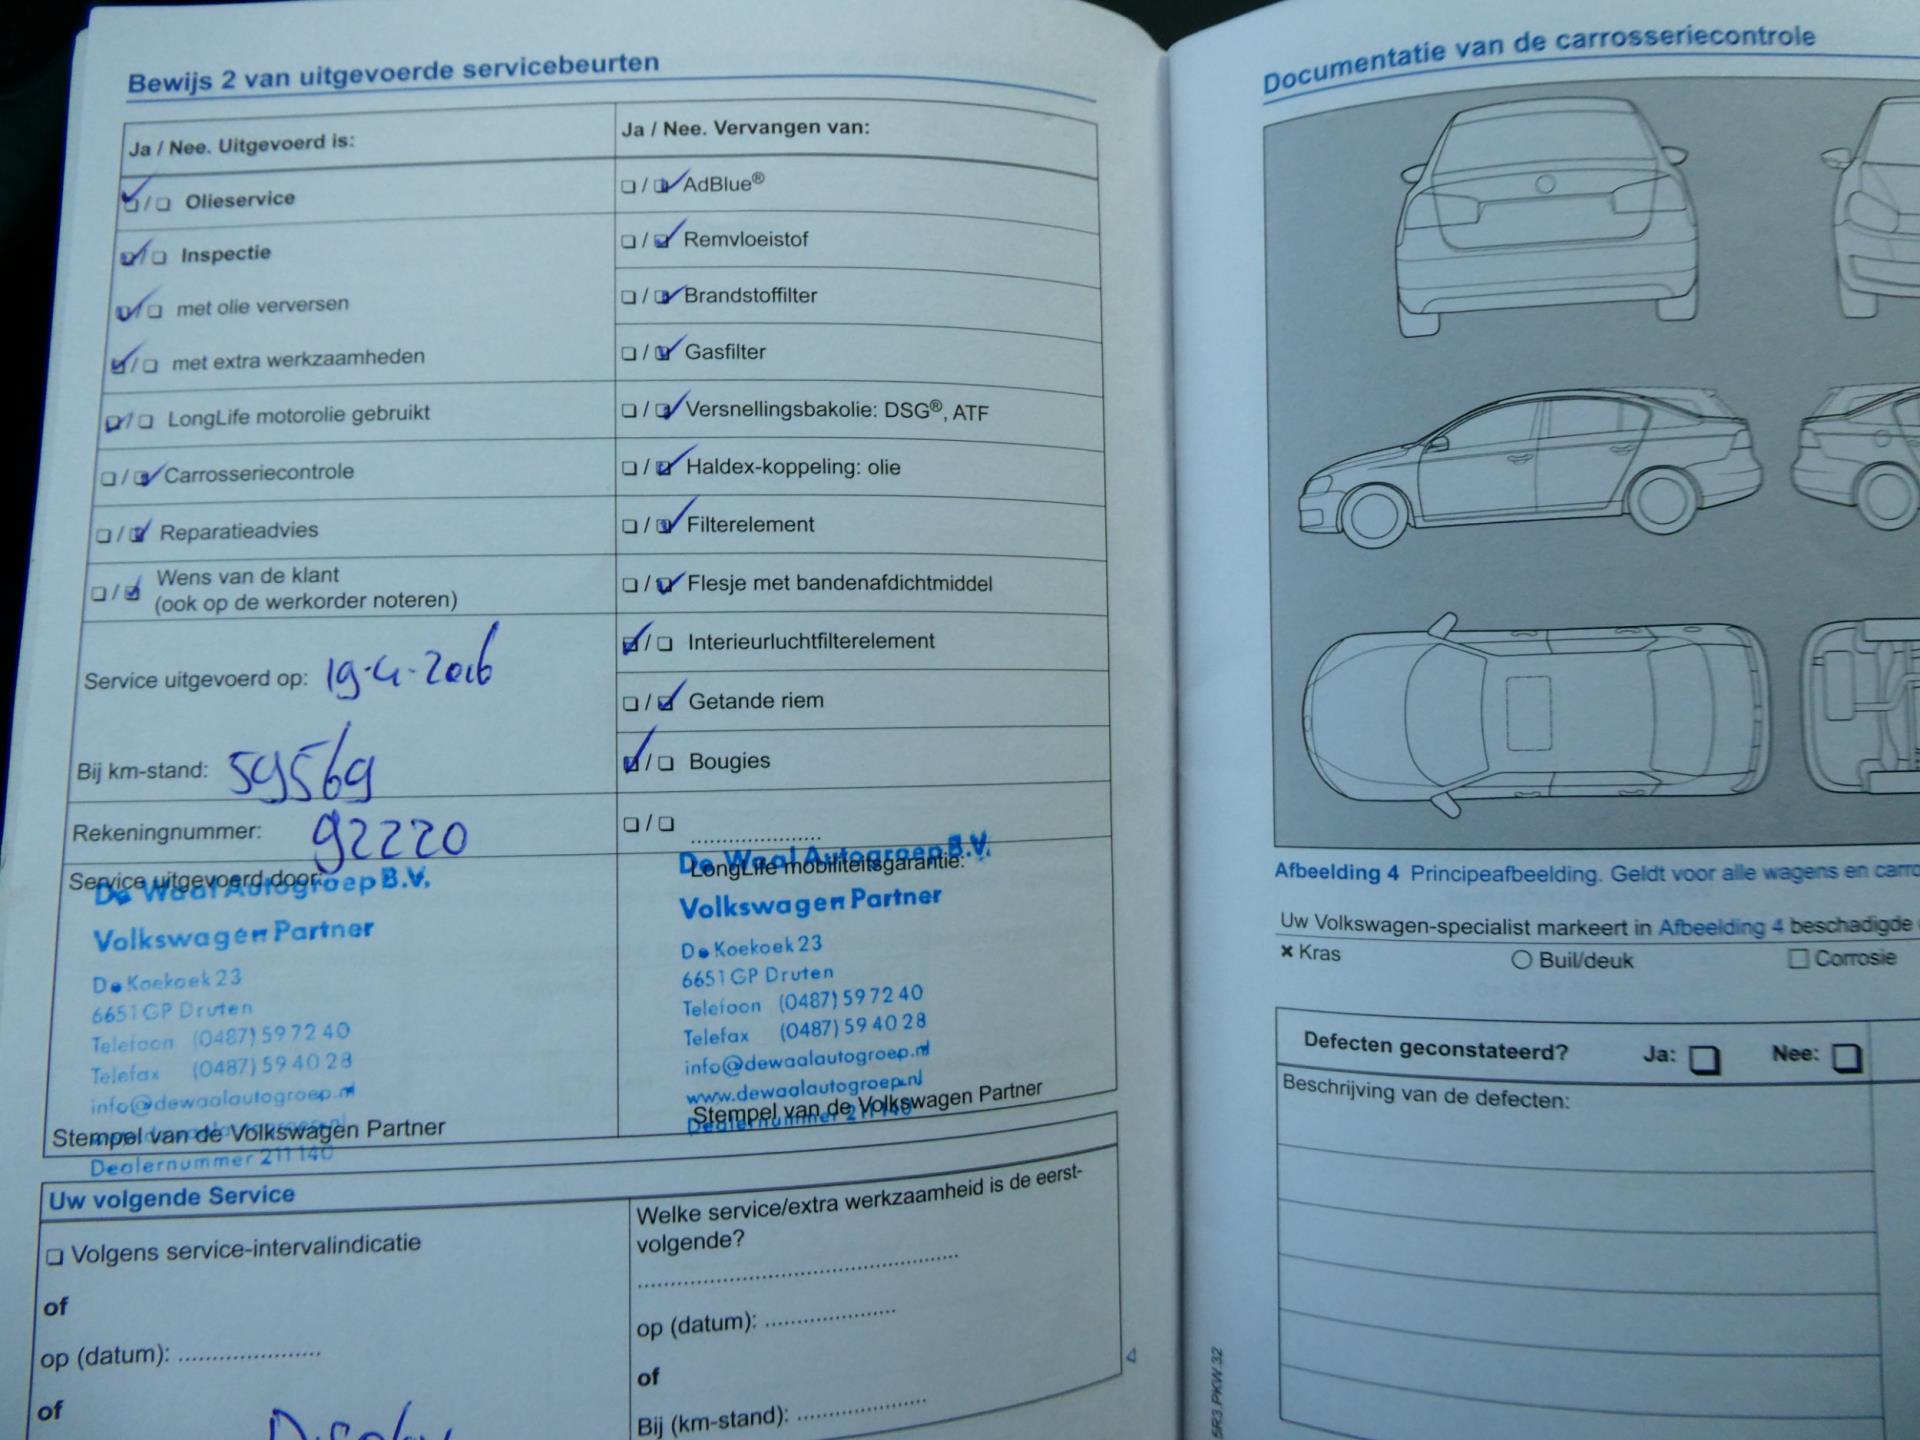 Bewijs 2 van uitgevoerde servicebeurten
Ja / Nee. Uitgevoerd is:
Olieservice
Inspectie
met olie verversen
met extra werkzaamheden
LongLife motorolie gebruikt
Carrosseriecontrole
Reparatieadvies
Wens van de klant
(ook op de werkorder noteren)
Service uitgevoerd op: 19-4-2016
Bij km-stand: 59569
Rekeningnummer: 92220
Service uitgevoerd door:
De Waal Autogroep B.V.
Volkswagen Partner
De Koekoek 23
6651 GP Druten
Telefoon (0487) 59 72 40
Telefax (0487) 59 40 28
info@dewaalautogroep.nl
Stempel van de Volkswagen Partner
Dealernummer 211140
Ja / Nee. Vervangen van:
AdBlue®
Remvloeistof
Brandstoffilter
Gasfilter
Versnellingsbakolie: DSG®, ATF
Haldex-koppeling: olie
Filterelement
Flesje met bandenafdichtmiddel
Interieurluchtfilterelement
Getande riem
Bougies
De Waal Autogroep B.V.
LongLife mobiliteitsgarantie:
Volkswagen Partner
De Koekoek 23
6651 GP Druten
Telefoon (0487) 59 72 40
Telefax (0487) 59 40 28
info@dewaalautogroep.nl
www.dewaalautogroep.nl
Stempel van de Volkswagen Partner
Dealernummer 211140
Uw volgende Service
Volgens service-intervalindicatie
of
op (datum):
of
Display
Welke service/extra werkzaamheid is de eerst-
volgende?
op (datum):
of
Bij (km-stand):
4
Documentatie van de carrosseriecontrole
Afbeelding 4 Principeafbeelding. Geldt voor alle wagens en
Uw Volkswagen-specialist markeert in Afbeelding 4 beschadigde
Kras
Buil/deuk
Corrosie
Defecten geconstateerd? Ja: Nee:
Beschrijving van de defecten:
5R3.PKW.32